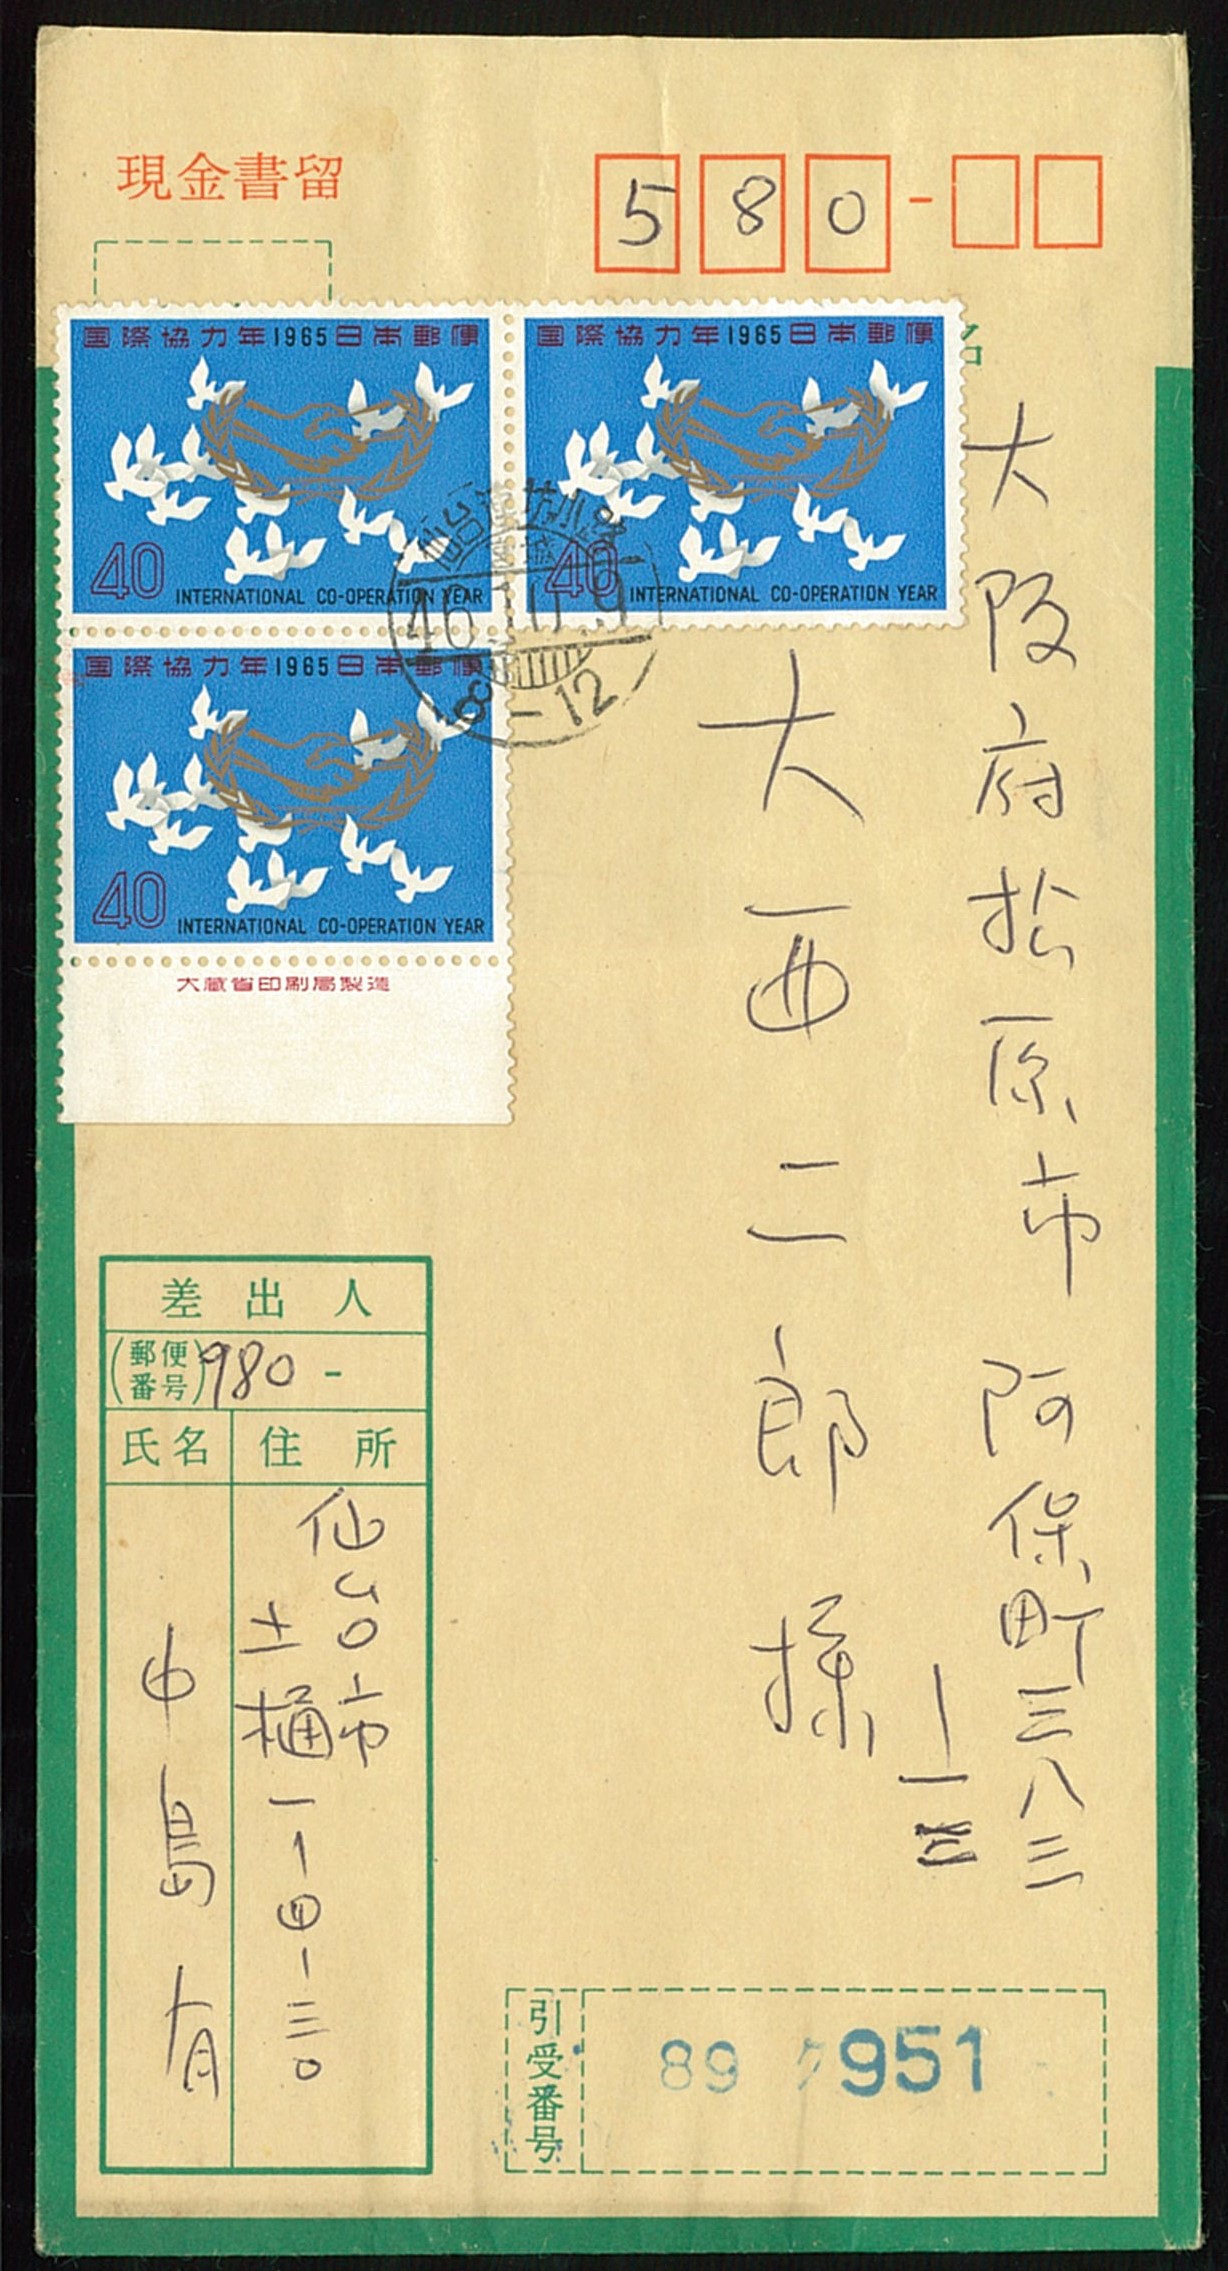 現金書留
580-
国際協力年1965日本郵便
40
INTERNATIONAL CO-OPERATION YEAR
国際協力年1965日本郵便
40
INTERNATIONAL CO-OPERATION YEAR
国際協力年1965日本郵便
40
INTERNATIONAL CO-OPERATION YEAR
大蔵省印刷局製造
46.10.9
8-12
名
大阪府松原市阿保町三八三
大西二郎様
差出人
(郵便番号)980-
氏名
住所
仙台市
土樋一-四-三〇
中島
引受番号
89
951